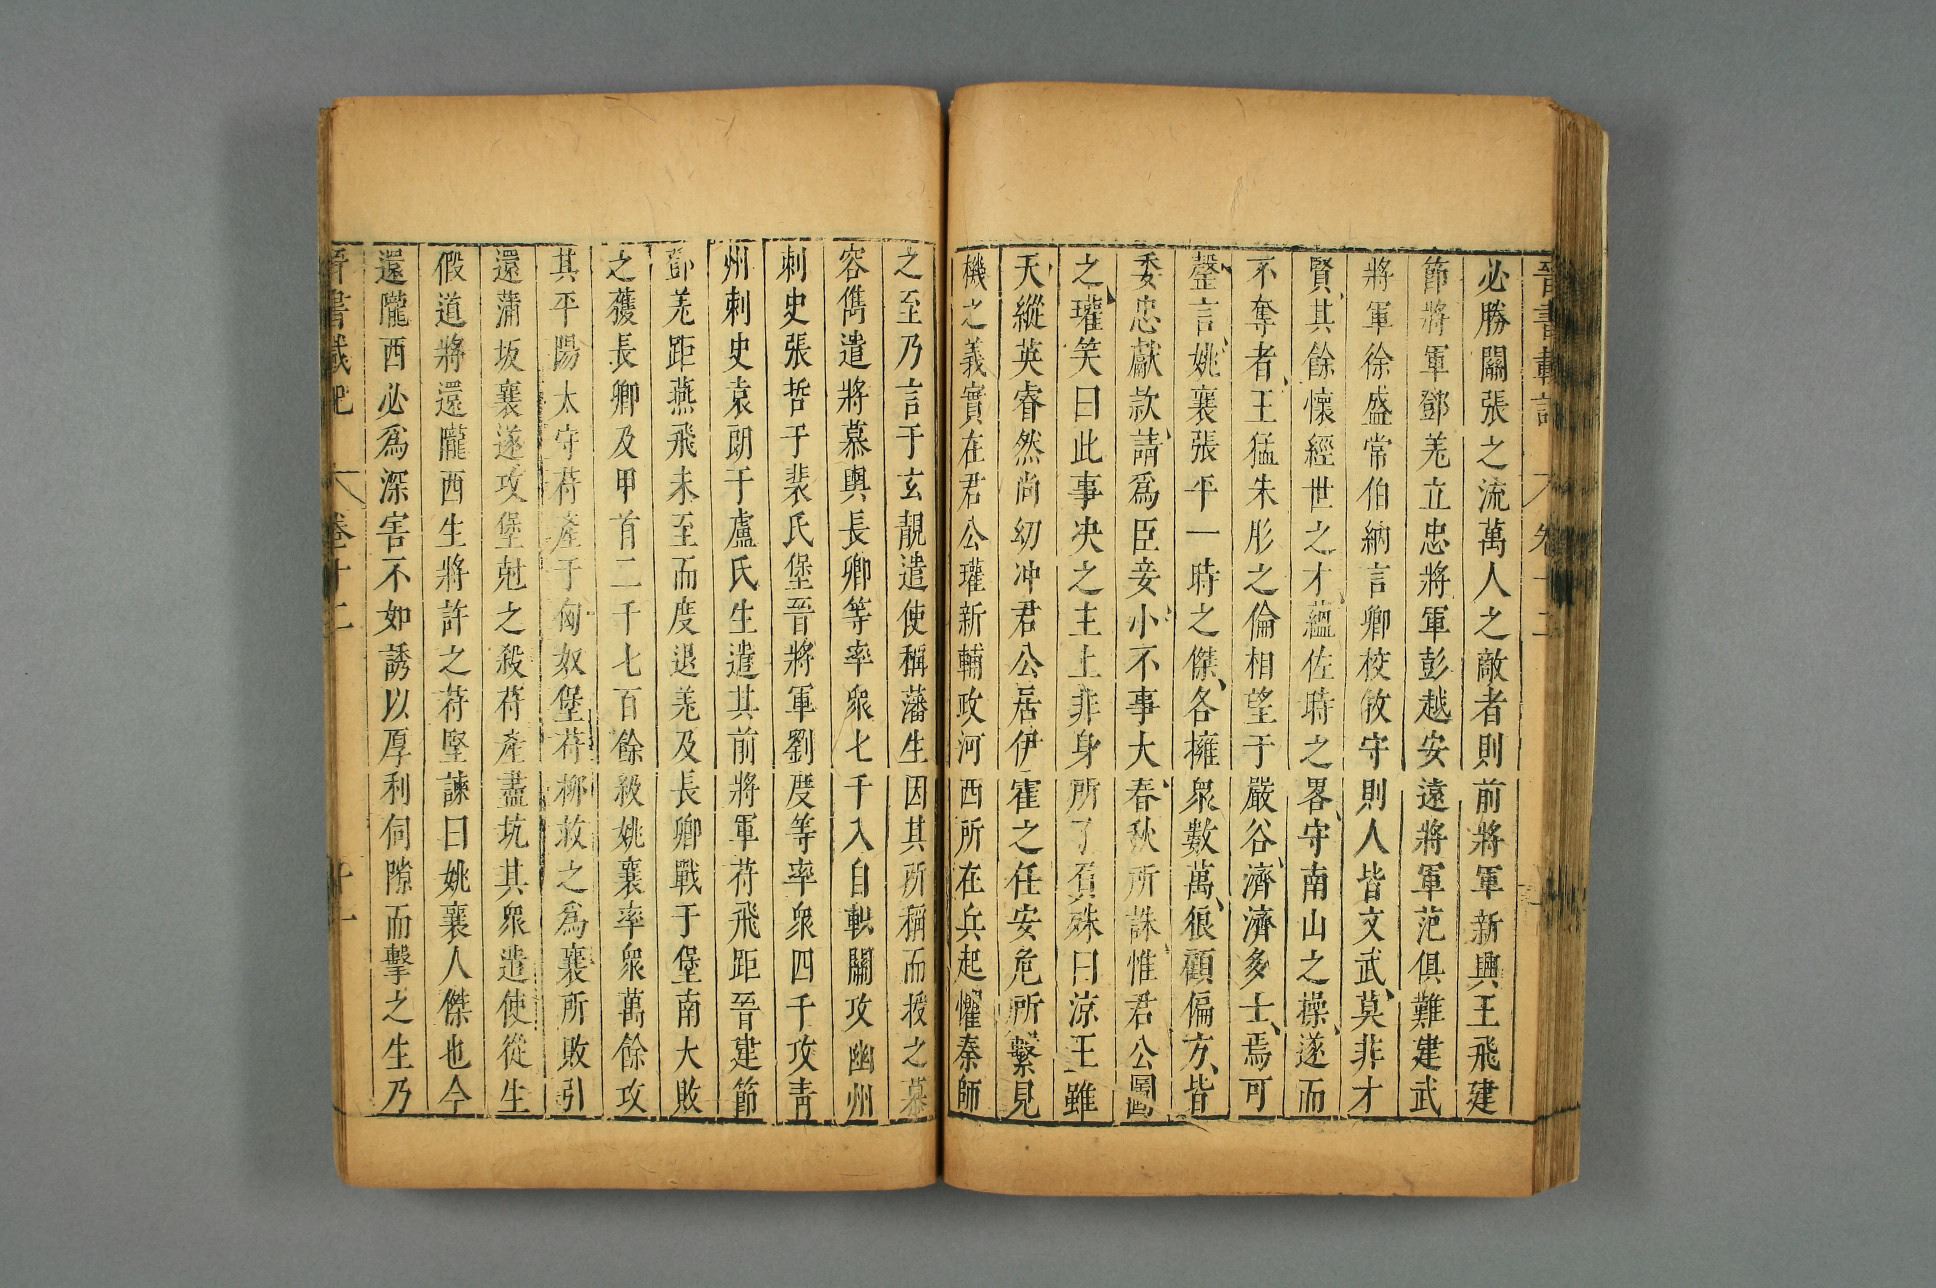 晉書載記 卷十二
必勝關張之流萬人之敵者則前將軍新興王飛建
節將軍鄧羌立忠將軍彭越安遠將軍范俱難建武
將軍徐盛常伯納言卿校牧守則人皆文武莫非才
賢其餘懷經世之才蘊佐時之畧守南山之操遂而
不奪者王猛朱肜之倫相望于嚴谷濟濟多士焉可
罄言姚襄張平一時之傑各擁衆數萬狼顧偏方皆
委忠獻款請爲臣妾小不事大春秋所誅惟君公圖
之瓘笑曰此事决之主上非身所了負殊曰凉王雖
天縱英睿然尚幼冲君公居伊霍之任安危所繫見
機之義實在君公瓘新輔政河西所在兵起懼秦師
之至乃言于玄靚遣使稱藩生因其所稱而授之慕
容儁遣將慕輿長卿等率衆七千入自軹關攻幽州
刺史張哲于裴氏堡晉將軍劉度等率衆四千攻青
州刺史袁朗于盧氏生遣其前將軍苻飛距晉建節
鄧羌距燕飛未至而度退羌及長卿戰于堡南大敗
之獲長卿及甲首二千七百餘級姚襄率衆萬餘攻
其平陽太守苻產于匈奴堡苻柳救之爲襄所敗引
還蒲坂襄遂攻堡尅之殺苻產盡坑其衆遣使從生
假道將還隴西生將許之苻堅諫曰姚襄人傑也今
還隴西必爲深害不如誘以厚利伺隙而擊之生乃
晉書載記 卷十二 十一